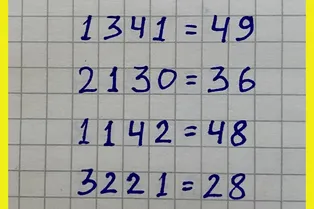 1341 = 49
2130 = 36
1142 = 48
3221 = 28